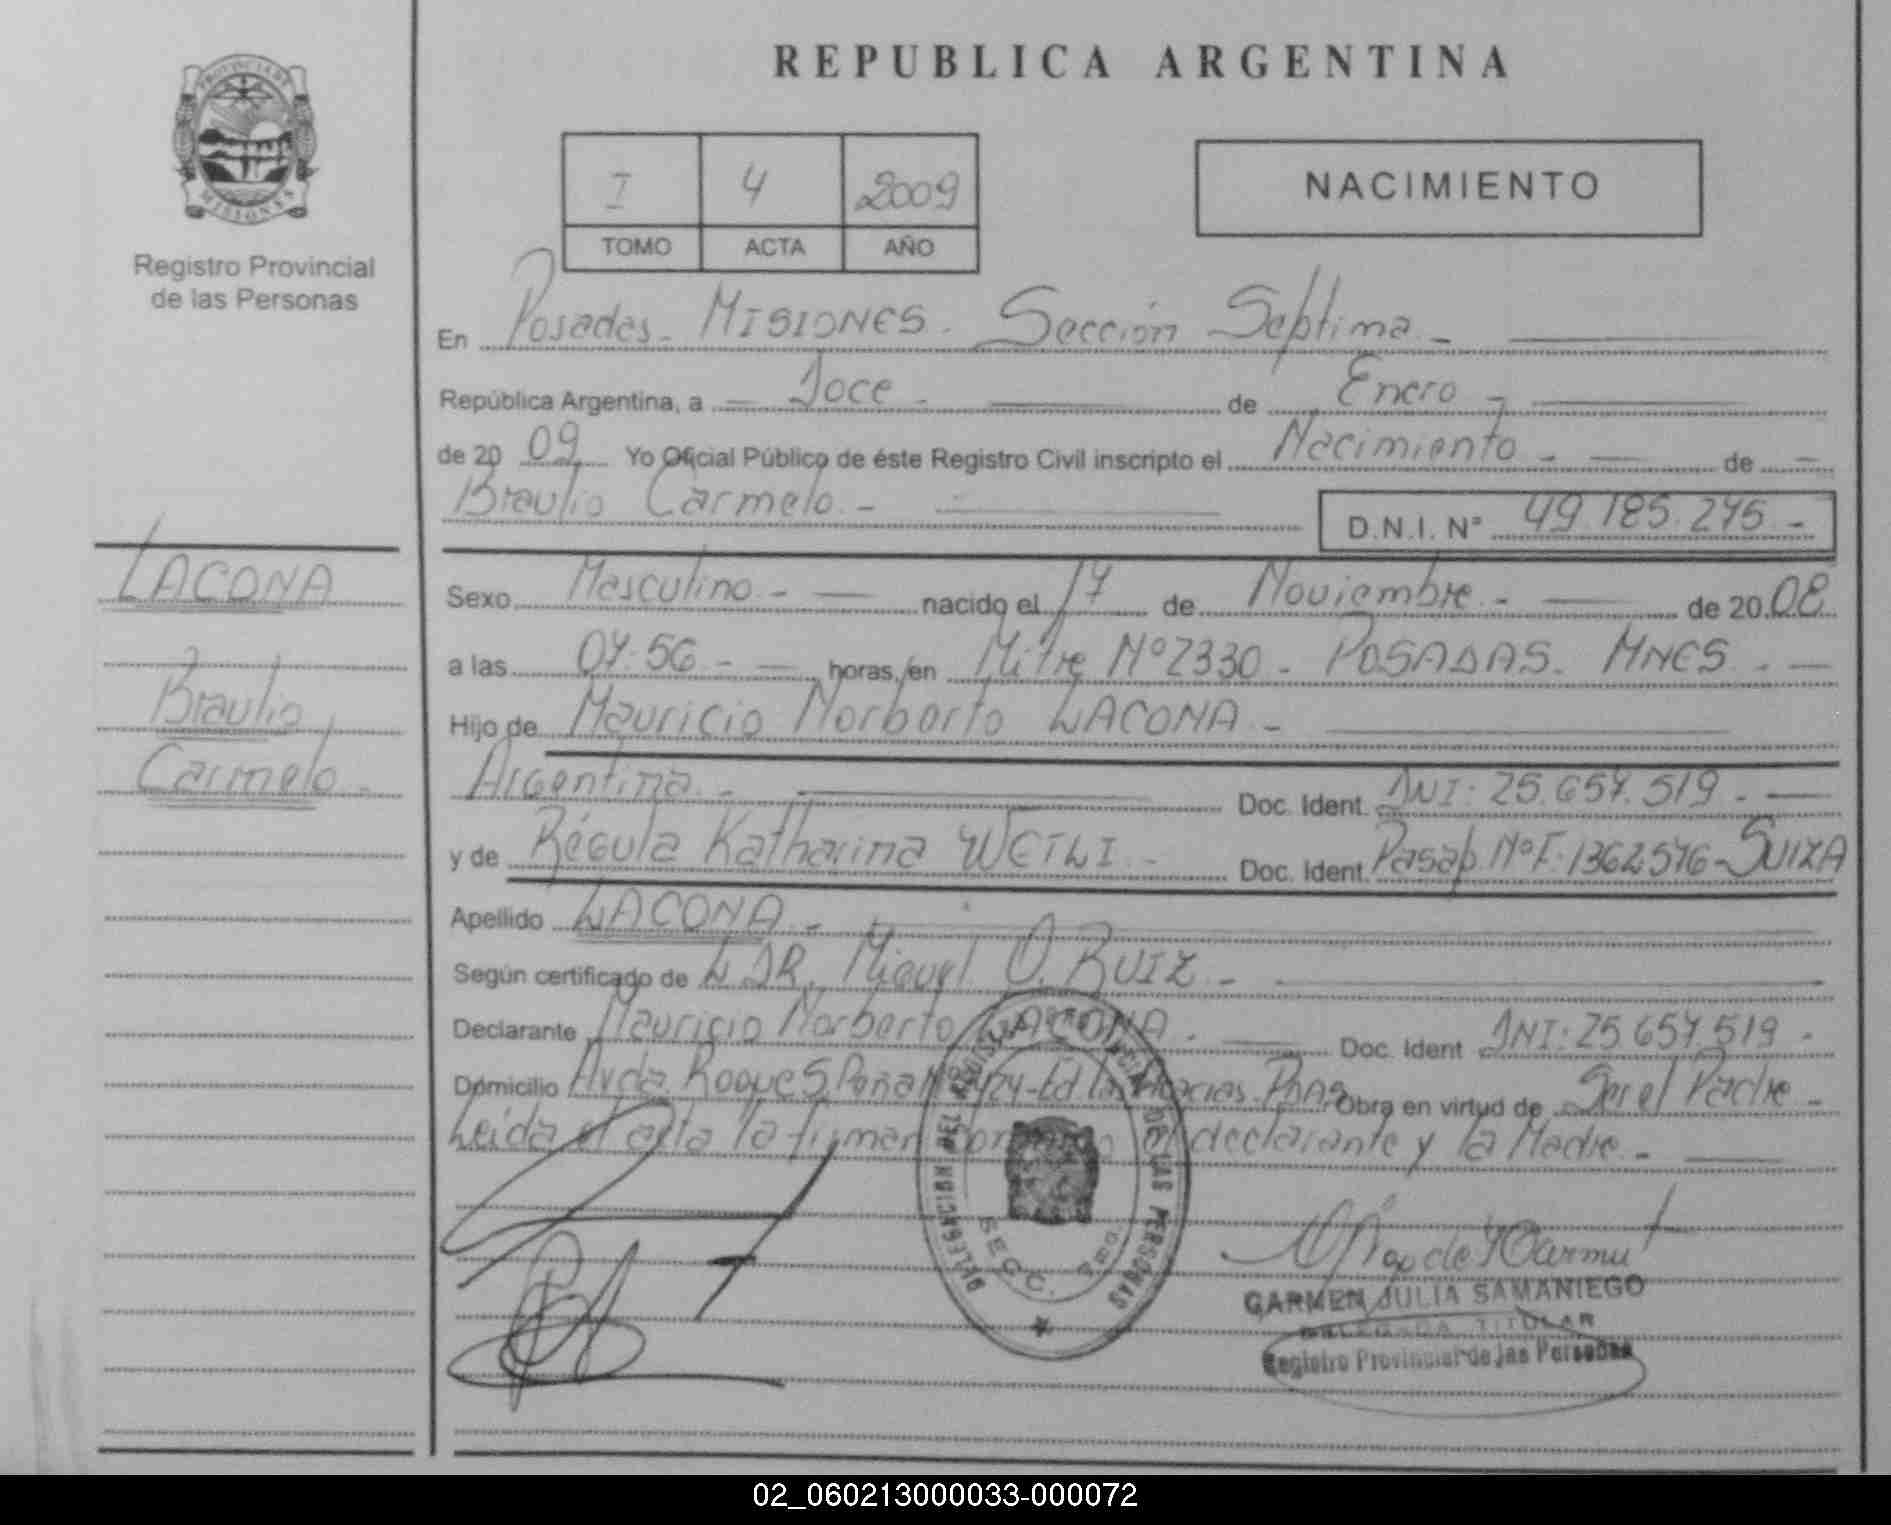 REPUBLICA ARGENTINA
PROVINCIA DE
MISIONES
Registro Provincial
de las Personas
I 4 2009
TOMO ACTA AÑO
NACIMIENTO
En Posadas - MISIONES. Sección Septima. -
República Argentina, a - Doce - de Enero -
de 2009 Yo Oficial Público de éste Registro Civil inscripto el Nacimiento - de -
Braulio Carmelo. - D.N.I. Nº 49.185.275 -
LACONA
Braulio
Carmelo -
Sexo Masculino - nacido el 17 de Noviembre - de 2008
a las 07:56 - horas, en Mitre Nº 2330 - POSADAS. MNES. -
Hijo de Mauricio Norberto LACONA -
Argentina - Doc. Ident. DNI: 25.657.519 -
y de Régula Katharina WEILI - Doc. Ident. Pasap. Nº F. 1362576 - SUIZA
Apellido LACONA -
Según certificado de L DR. Miguel O. RUIZ -
Declarante Mauricio Norberto LACONA - Doc. Ident DNI: 25.657.519 -
Domicilio Avda. Roque S. Peña Nº Ed. las Acacias. Pdas Obra en virtud de Ser el Padre -
Leída el acta la firman conmigo el declarante y la Madre. -
DELEGACION DEL REGISTRO PROVINCIAL DE LAS PERSONAS
SECC.
CARMEN JULIA SAMANIEGO
DELEGADA TITULAR
Registro Provincial de las Personas
02_060213000033-000072